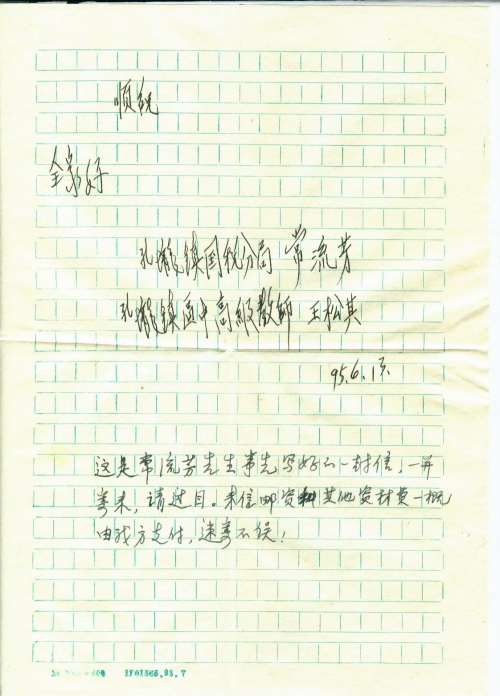 顺祝
全家好
孔垅镇国税分局 常流芳
孔垅镇区中高级教师 王松其
95.6.15.
这是常流芳先生事先写好的一封信，一并
寄来，请过目。来信邮资和其他资材费一概
由我方支付，速寄不误！
1F01565.93.7